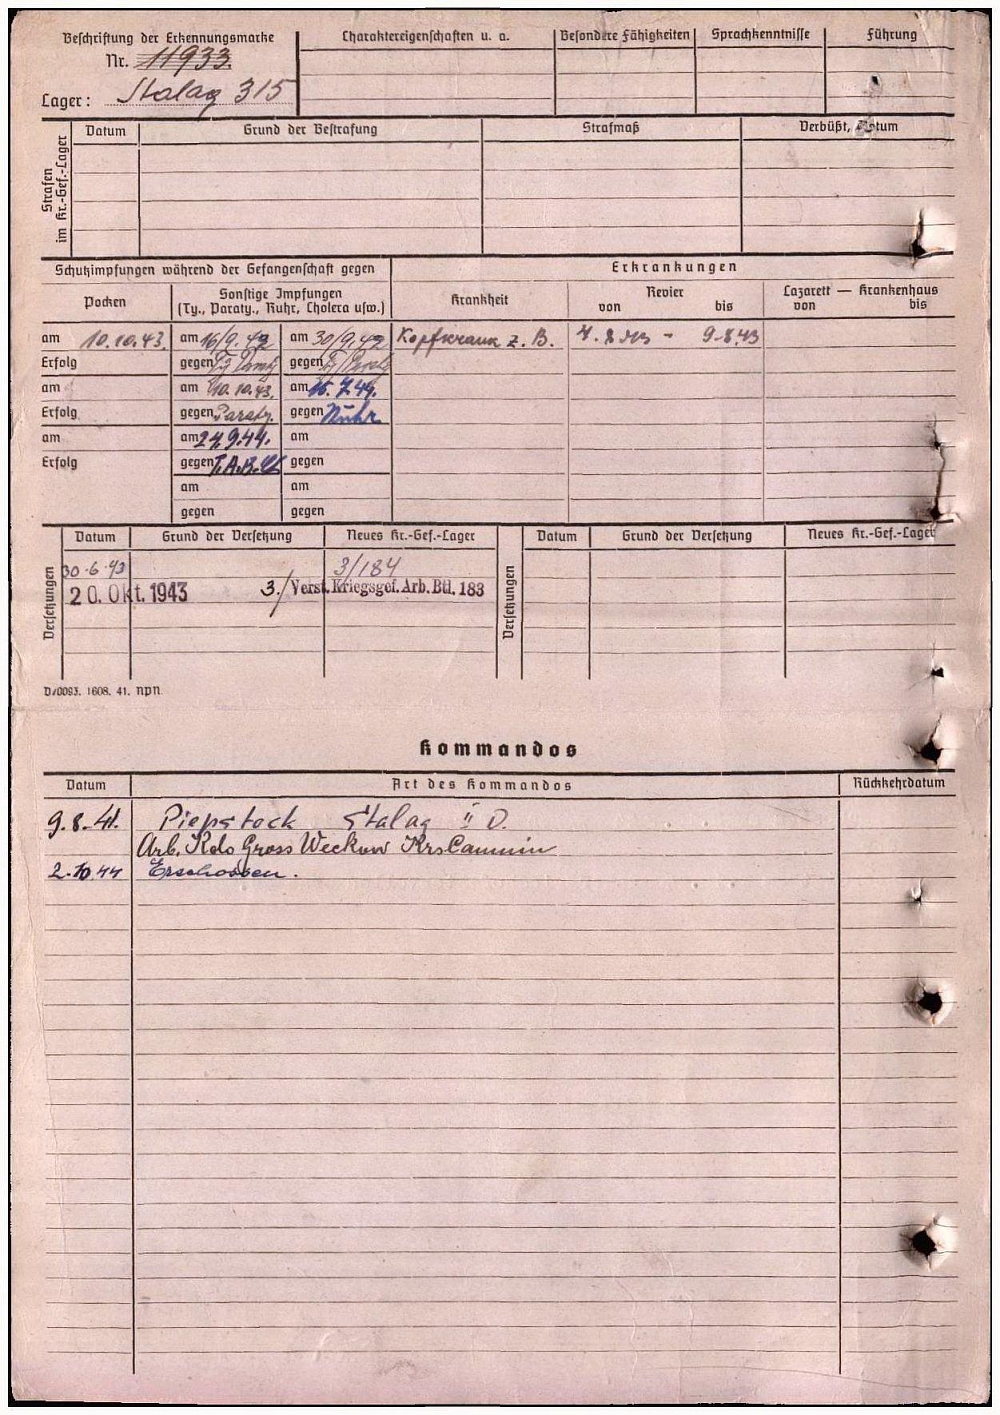 Beschriftung der Erkennungsmarke
Nr. 11933.
Lager: Stalag 315
Charaktereigenschaften u. a.
Besondere Fähigkeiten
Sprachkenntnisse
Führung
Strafen im Kr.-Gef.-Lager
Datum
Grund der Bestrafung
Strafmaß
Verbüßt, Datum
Schutzimpfungen während der Gefangenschaft gegen
Erkrankungen
Pocken
Sonstige Impfungen
(Ty., Paraty., Ruhr, Cholera usw.)
Krankheit
Revier
von bis
Lazarett — Krankenhaus
von bis
am 10.10.43. am 16/9.42 am 30/9.42 z. B. - 9.8.43
Erfolg gegen gegen
am am 10.10.43. am 15.7.44.
Erfolg gegen Paraty. gegen Ruhr
am am 27.9.44. am
Erfolg gegen gegen
am am
gegen gegen
Versetzungen
Datum Grund der Versetzung Neues Kr.-Gef.-Lager
30.6.43 3/184
20. Okt. 1943 3./Verst. Kriegsgef. Arb. Btl. 183
Versetzungen
Datum Grund der Versetzung Neues Kr.-Gef.-Lager
D/0093. 1608. 41. npn
Kommandos
Datum Art des Kommandos Rückkehrdatum
9.8.41. Piepstock Stalag II D.
Arb. Kdo Gross Weckow Krs Cammin
2.10.44 Erschossen.